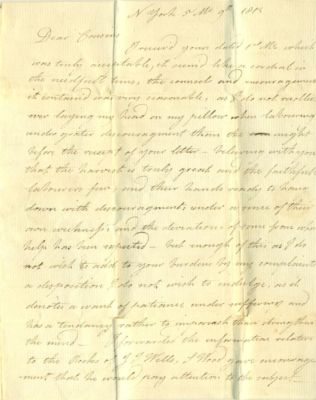 N York 5 Mo 9th 1815
Dear Cousin
I receivd yours dated 1st Mo which
was truly acceptable, it seemd like a cordial in
the needfull time, the counsel and encouragement
it contained was very seasonable, as I do not recollect
ever laying my head on my pillow when labouring
under greater discouragement than the night
before the receipt of your letter - believing with you
that the harvest is truly great and the faithfull
labourers few, and their hands ready to hang
down with discouragement, under a sense of their
own weakness and the deviations of some from whom
help has been expected - but enough of this as I do
not wish to add to your burdens by my complaints
a disposition I do not wish to indulge, as it
denotes a want of patience under sufferings and
has a tendency rather to than strengthen
the mind - I forwarded the information relative
to the Books of J J Wells, S Wood gave encourage
ment that he would pay attention to the subject -